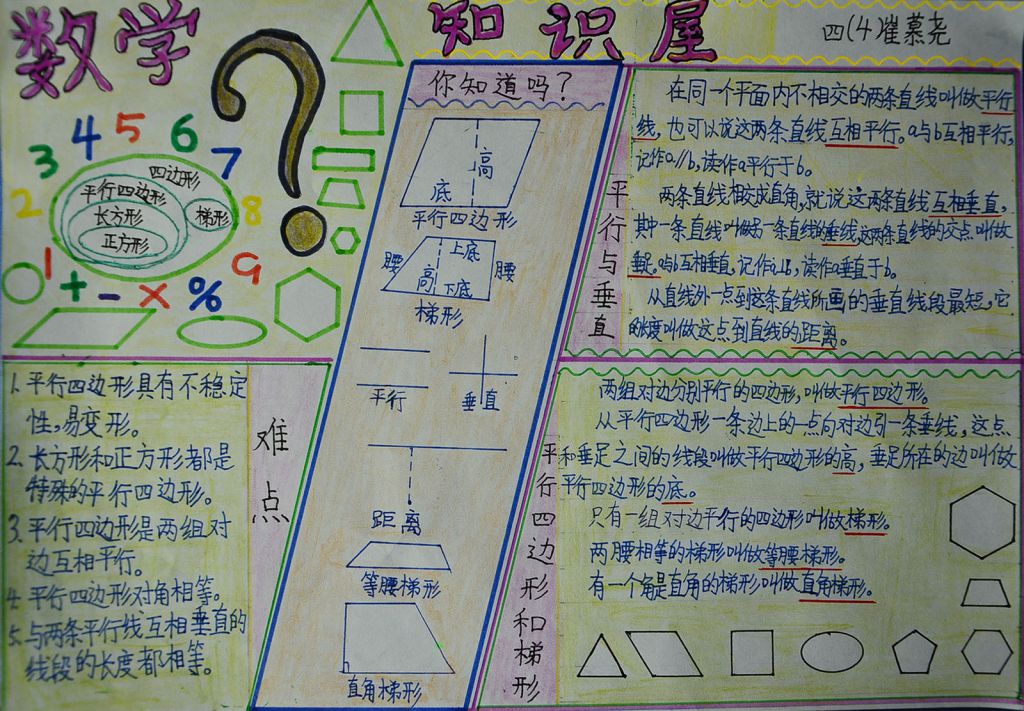 数学知识屋
四(4)崔慕尧
1 2 3 4 5 6 7 8 9
+ - × %
四边形
平行四边形
长方形
正方形
梯形
你知道吗？
高
底
平行四边形
上底
腰
高
腰
下底
梯形
平行
垂直
距离
等腰梯形
直角梯形
平行与垂直
在同一个平面内不相交的两条直线叫做平行
线，也可以说这两条直线互相平行。a与b互相平行，
记作a∥b，读作a平行于b。
两条直线相交成直角，就说这两条直线互相垂直，
其中一条直线叫做另一条直线的垂线，这两条直线的交点叫做
垂足。a与b互相垂直，记作a⊥b，读作a垂直于b。
从直线外一点到这条直线所画的垂直线段最短，它
的长度叫做这点到直线的距离。
难点
1. 平行四边形具有不稳定
性，易变形。
2. 长方形和正方形都是
特殊的平行四边形。
3. 平行四边形是两组对
边互相平行。
4. 平行四边形对角相等。
5. 与两条平行线互相垂直的
线段的长度都相等。
平行四边形和梯形
两组对边分别平行的四边形，叫做平行四边形。
从平行四边形一条边上的一点向对边引一条垂线，这点
和垂足之间的线段叫做平行四边形的高，垂足所在的边叫做
平行四边形的底。
只有一组对边平行的四边形叫做梯形。
两腰相等的梯形叫做等腰梯形。
有一个角是直角的梯形叫做直角梯形。